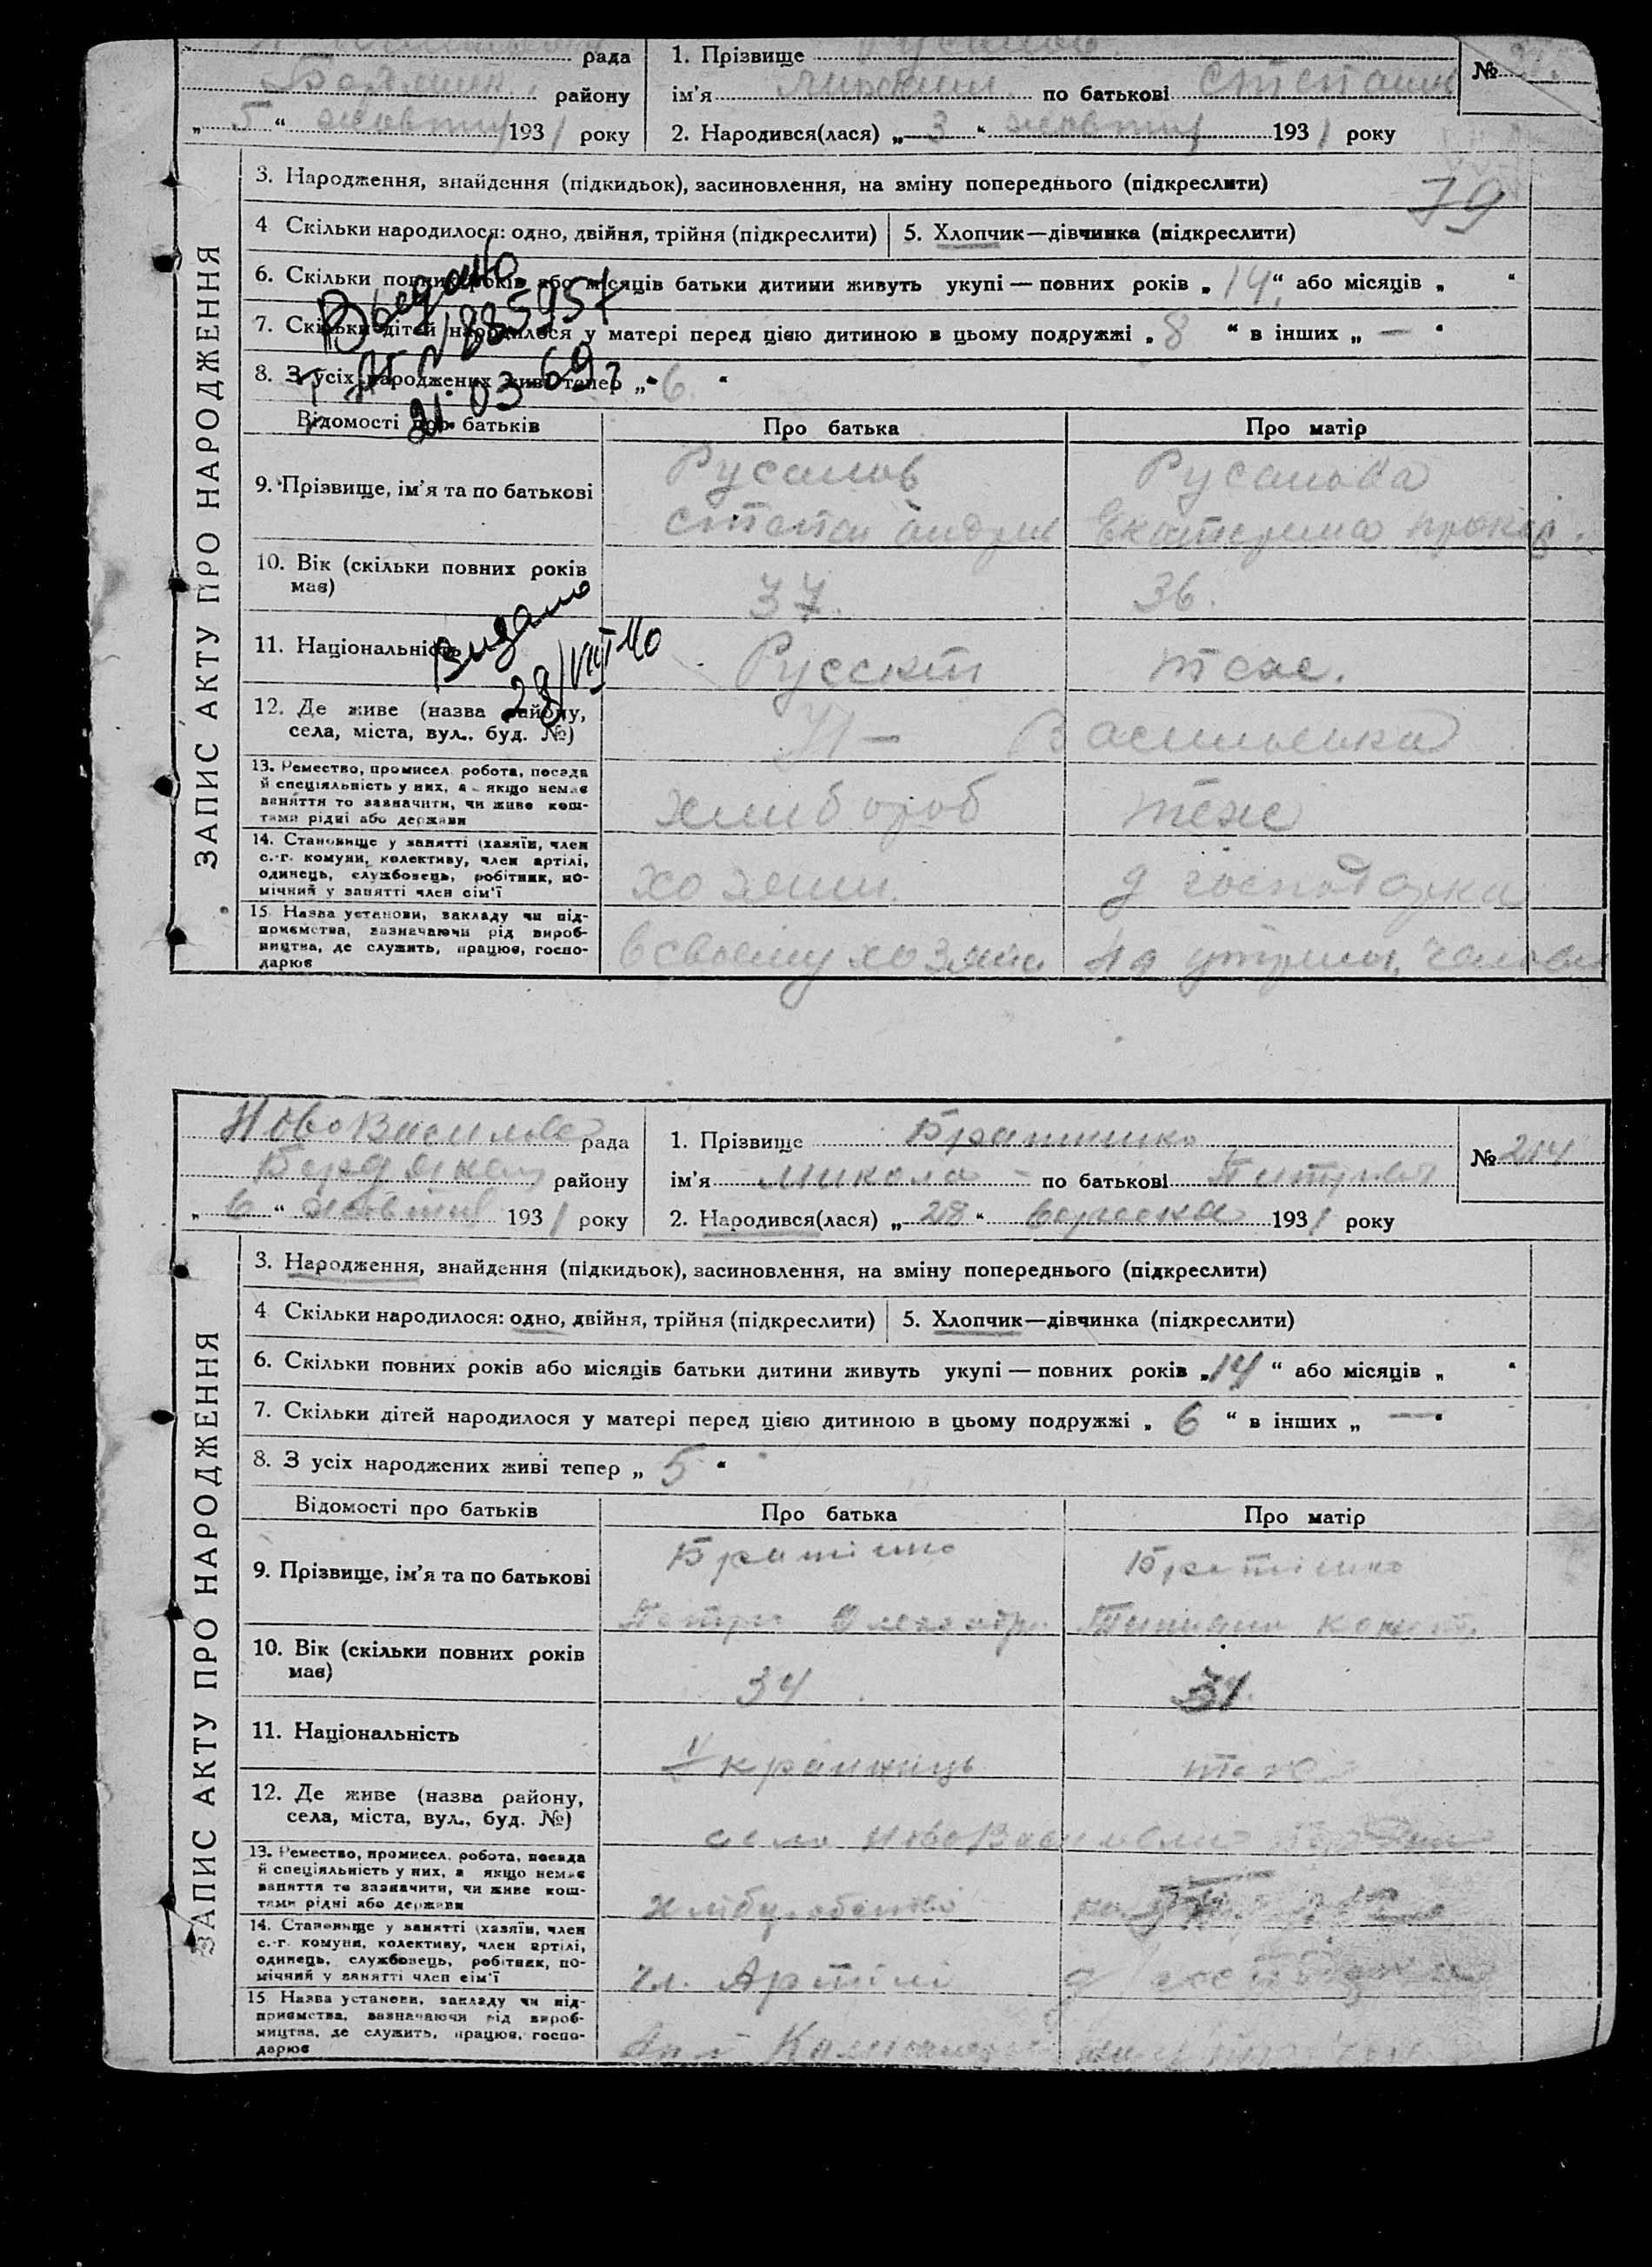 рада
району
„ 5 “ жовтня 1931 року
1. Прізвище Русанов
ім'я по батькові Степанов
2. Народився(лася) „ 3 “ жовтня 1931 року
№
79
ЗАПИС АКТУ ПРО НАРОДЖЕННЯ
3. Народження, знайдення (підкидьок), засиновлення, на зміну попереднього (підкреслити)
4 Скільки народилося: одно, двійня, трійня (підкреслити)
5. Хлопчик—дівчинка (підкреслити)
6. Скільки повних років або місяців батьки дитини живуть укупі — повних років „ 14 “ або місяців „ “
7. Скільки дітей народилося у матері перед цією дитиною в цьому подружжі „ 8 “ в інших „ — “
8. З усіх народжених живі тепер „ 6 “
Выдано
21.03.69г
Відомості про батьків
Про батька
Про матір
9. Прізвище, ім'я та по батькові
Русанов
Степан Андрии
Русанова
Екатерина Проков.
10. Вік (скільки повних років
має)
37.
36.
Видано
28/VIII 40
11. Національність
Русский
тоже.
12. Де живе (назва району,
села, міста, вул., буд. №)
Н — Васильевка
13. Ремество, промисел, робота, посада
й спеціяльність у них, а якщо немає
заняття то зазначити, чи живе кош-
тами рідні або держави
хлибороб
теж
14. Становище у занятті (хазяїн, член
с.-г. комуни, колективу, член артілі,
одинець, службовець, робітник, по-
мічний у занятті член сім'ї
хозяин.
д господарка
15 Назва установи, закладу чи під-
приємства, зазначаючи рід вироб-
ництва, де служить, працює, госпо-
дарює
в своему хозяйс
на утриман. человека
НовоВасилівс рада
району
„ 6 “ жовтня 1931 року
1. Прізвище Братишко
ім'я Микола по батькові Питрович
2. Народився(лася) „ 28 “ вересня 1931 року
№ 214
ЗАПИС АКТУ ПРО НАРОДЖЕННЯ
3. Народження, знайдення (підкидьок), засиновлення, на зміну попереднього (підкреслити)
4 Скільки народилося: одно, двійня, трійня (підкреслити)
5. Хлопчик—дівчинка (підкреслити)
6. Скільки повних років або місяців батьки дитини живуть укупі — повних років „ 14 “ або місяців „ “
7. Скільки дітей народилося у матері перед цією дитиною в цьому подружжі „ 6 “ в інших „ — “
8. З усіх народжених живі тепер „ 5 “
Відомості про батьків
Про батька
Про матір
9. Прізвище, ім'я та по батькові
Братішко
Петро Олександр.
Братішко
10. Вік (скільки повних років
має)
34
31.
11. Національність
Українець
теж
12. Де живе (назва району,
села, міста, вул., буд. №)
село
13. Ремество, промисел, робота, посада
й спеціяльність у них, а якщо немає
заняття то зазначити, чи живе кош-
тами рідні або держави
14. Становище у занятті (хазяїн, член
с.-г. комуни, колективу, член артілі,
одинець, службовець, робітник, по-
мічний у занятті член сім'ї
чл. Артілі
15 Назва установи, закладу чи під-
приємства, зазначаючи рід вироб-
ництва, де служить, працює, госпо-
дарює